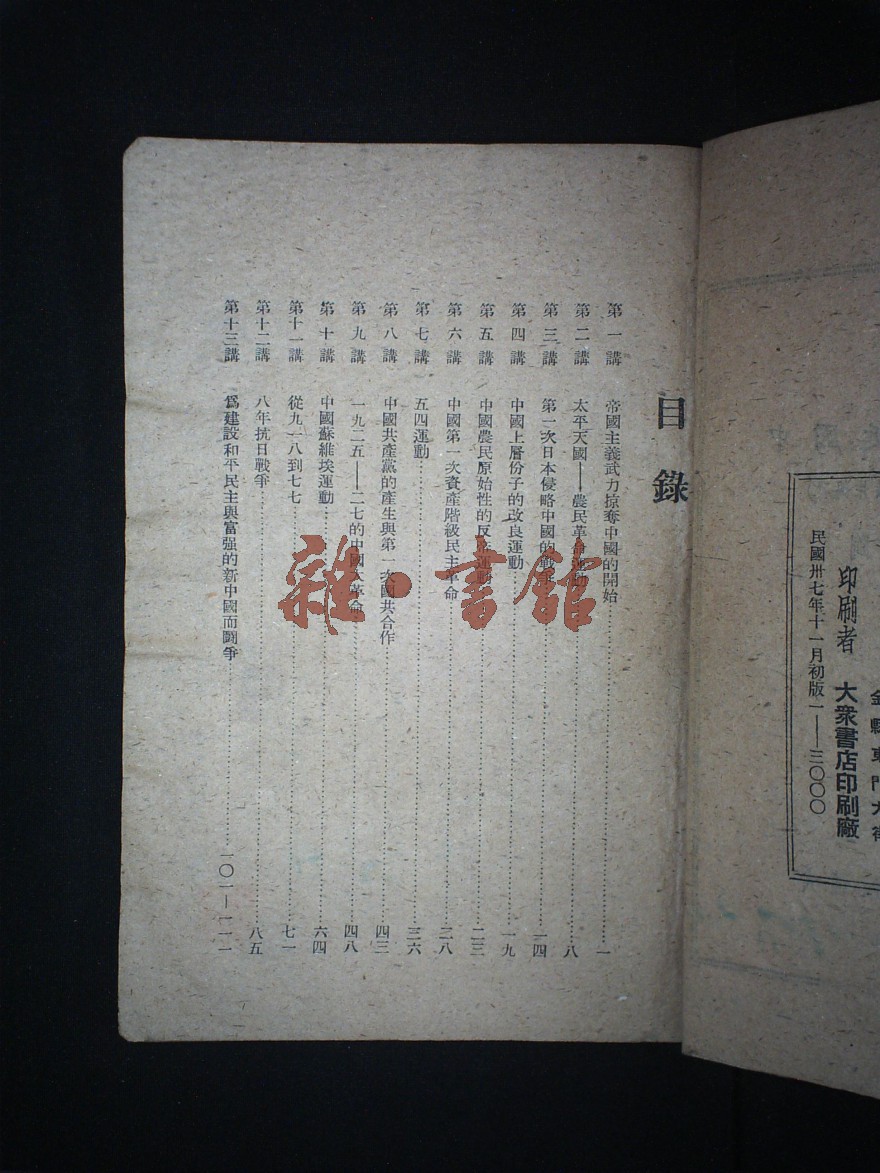 印刷者 大衆書店印刷廠
民國卅七年十一月初版一——三〇〇〇
目錄
第一講 帝國主義武力掠奪中國的開始 一
第二講 太平天國——農民革命運動 八
第三講 第一次日本侵略中國的戰爭 一四
第四講 中國上層份子的改良運動 一九
第五講 中國農民原始性的反帝運動 二三
第六講 中國第一次資產階級民主革命 二八
第七講 五四運動 三六
第八講 中國共產黨的產生與第一次國共合作 四三
第九講 一九二五——二七的中國大革命 四八
第十講 中國蘇維埃運動 六四
第十一講 從九一八到七七 七一
第十二講 八年抗日戰爭 八五
第十三講 爲建設和平民主與富强的新中國而鬪爭 一〇一—一一一
雜·書館